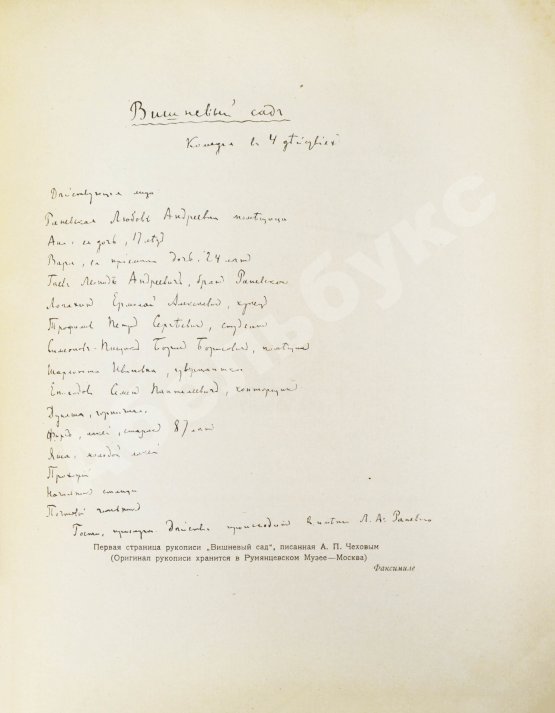 Вишневый садъ
Комедия в 4 действиях
Действующия лица
Раневская Любовь Андреевна помещица
Аня. ея дочь, 17 лет
Варя, ея приемная дочь. 24 лет
Гаев Леонидъ Андреевичъ, брат Раневской
Лопахин Ермолай Алексеевич, купец
Трофимов Петр Сергѣевич, студент
Симеонов-Пищик Борис Борисович, помещик
Шарлотта Ивановна, гувернантка
Епиходов Семен Пантелеевич, конторщик
Дуняша, горничная.
Фирс, лакей, старик 87 лет
Яша. молодой лакей
Прохожий
Начальник станции
Почтовый чиновник
Гости, прислуга. Действие происходит в имении Л. А. Раневской
Первая страница рукописи „Вишневый сад“, писанная А. П. Чеховым
(Оригинал рукописи хранится в Румянцевском Музее—Москва)
Факсимиле